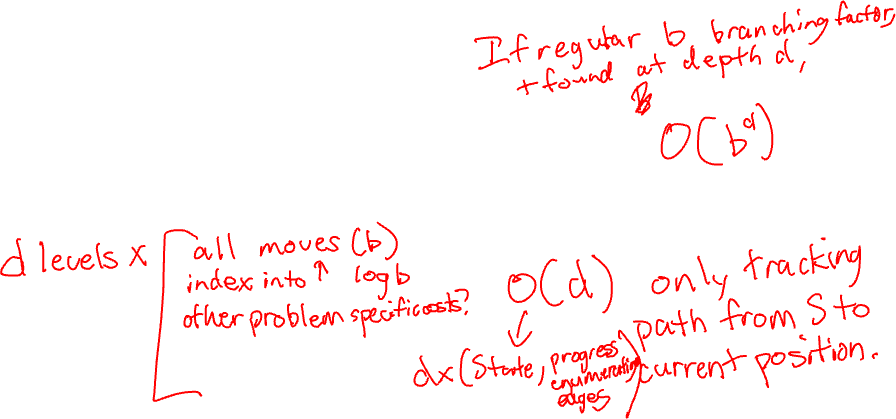 If regular b branching factor,
+ found at depth d,
O(b^d)
d levels x
all moves (b)
index into ↑ log b
other problem specific costs?
O(d) only tracking
path from S to
current position.
↓
dx(State, progress
enumerating
edges)